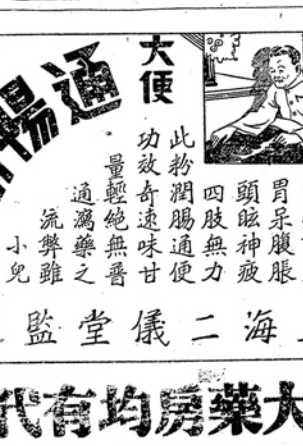 大便
通腸
胃呆腹脹
頭眩神疲
四肢無力
此粉潤腸通便
功效奇速味甘
量輕絕無普
通瀉藥之
流弊雖
小兒
海二儀堂監
大藥房均有代